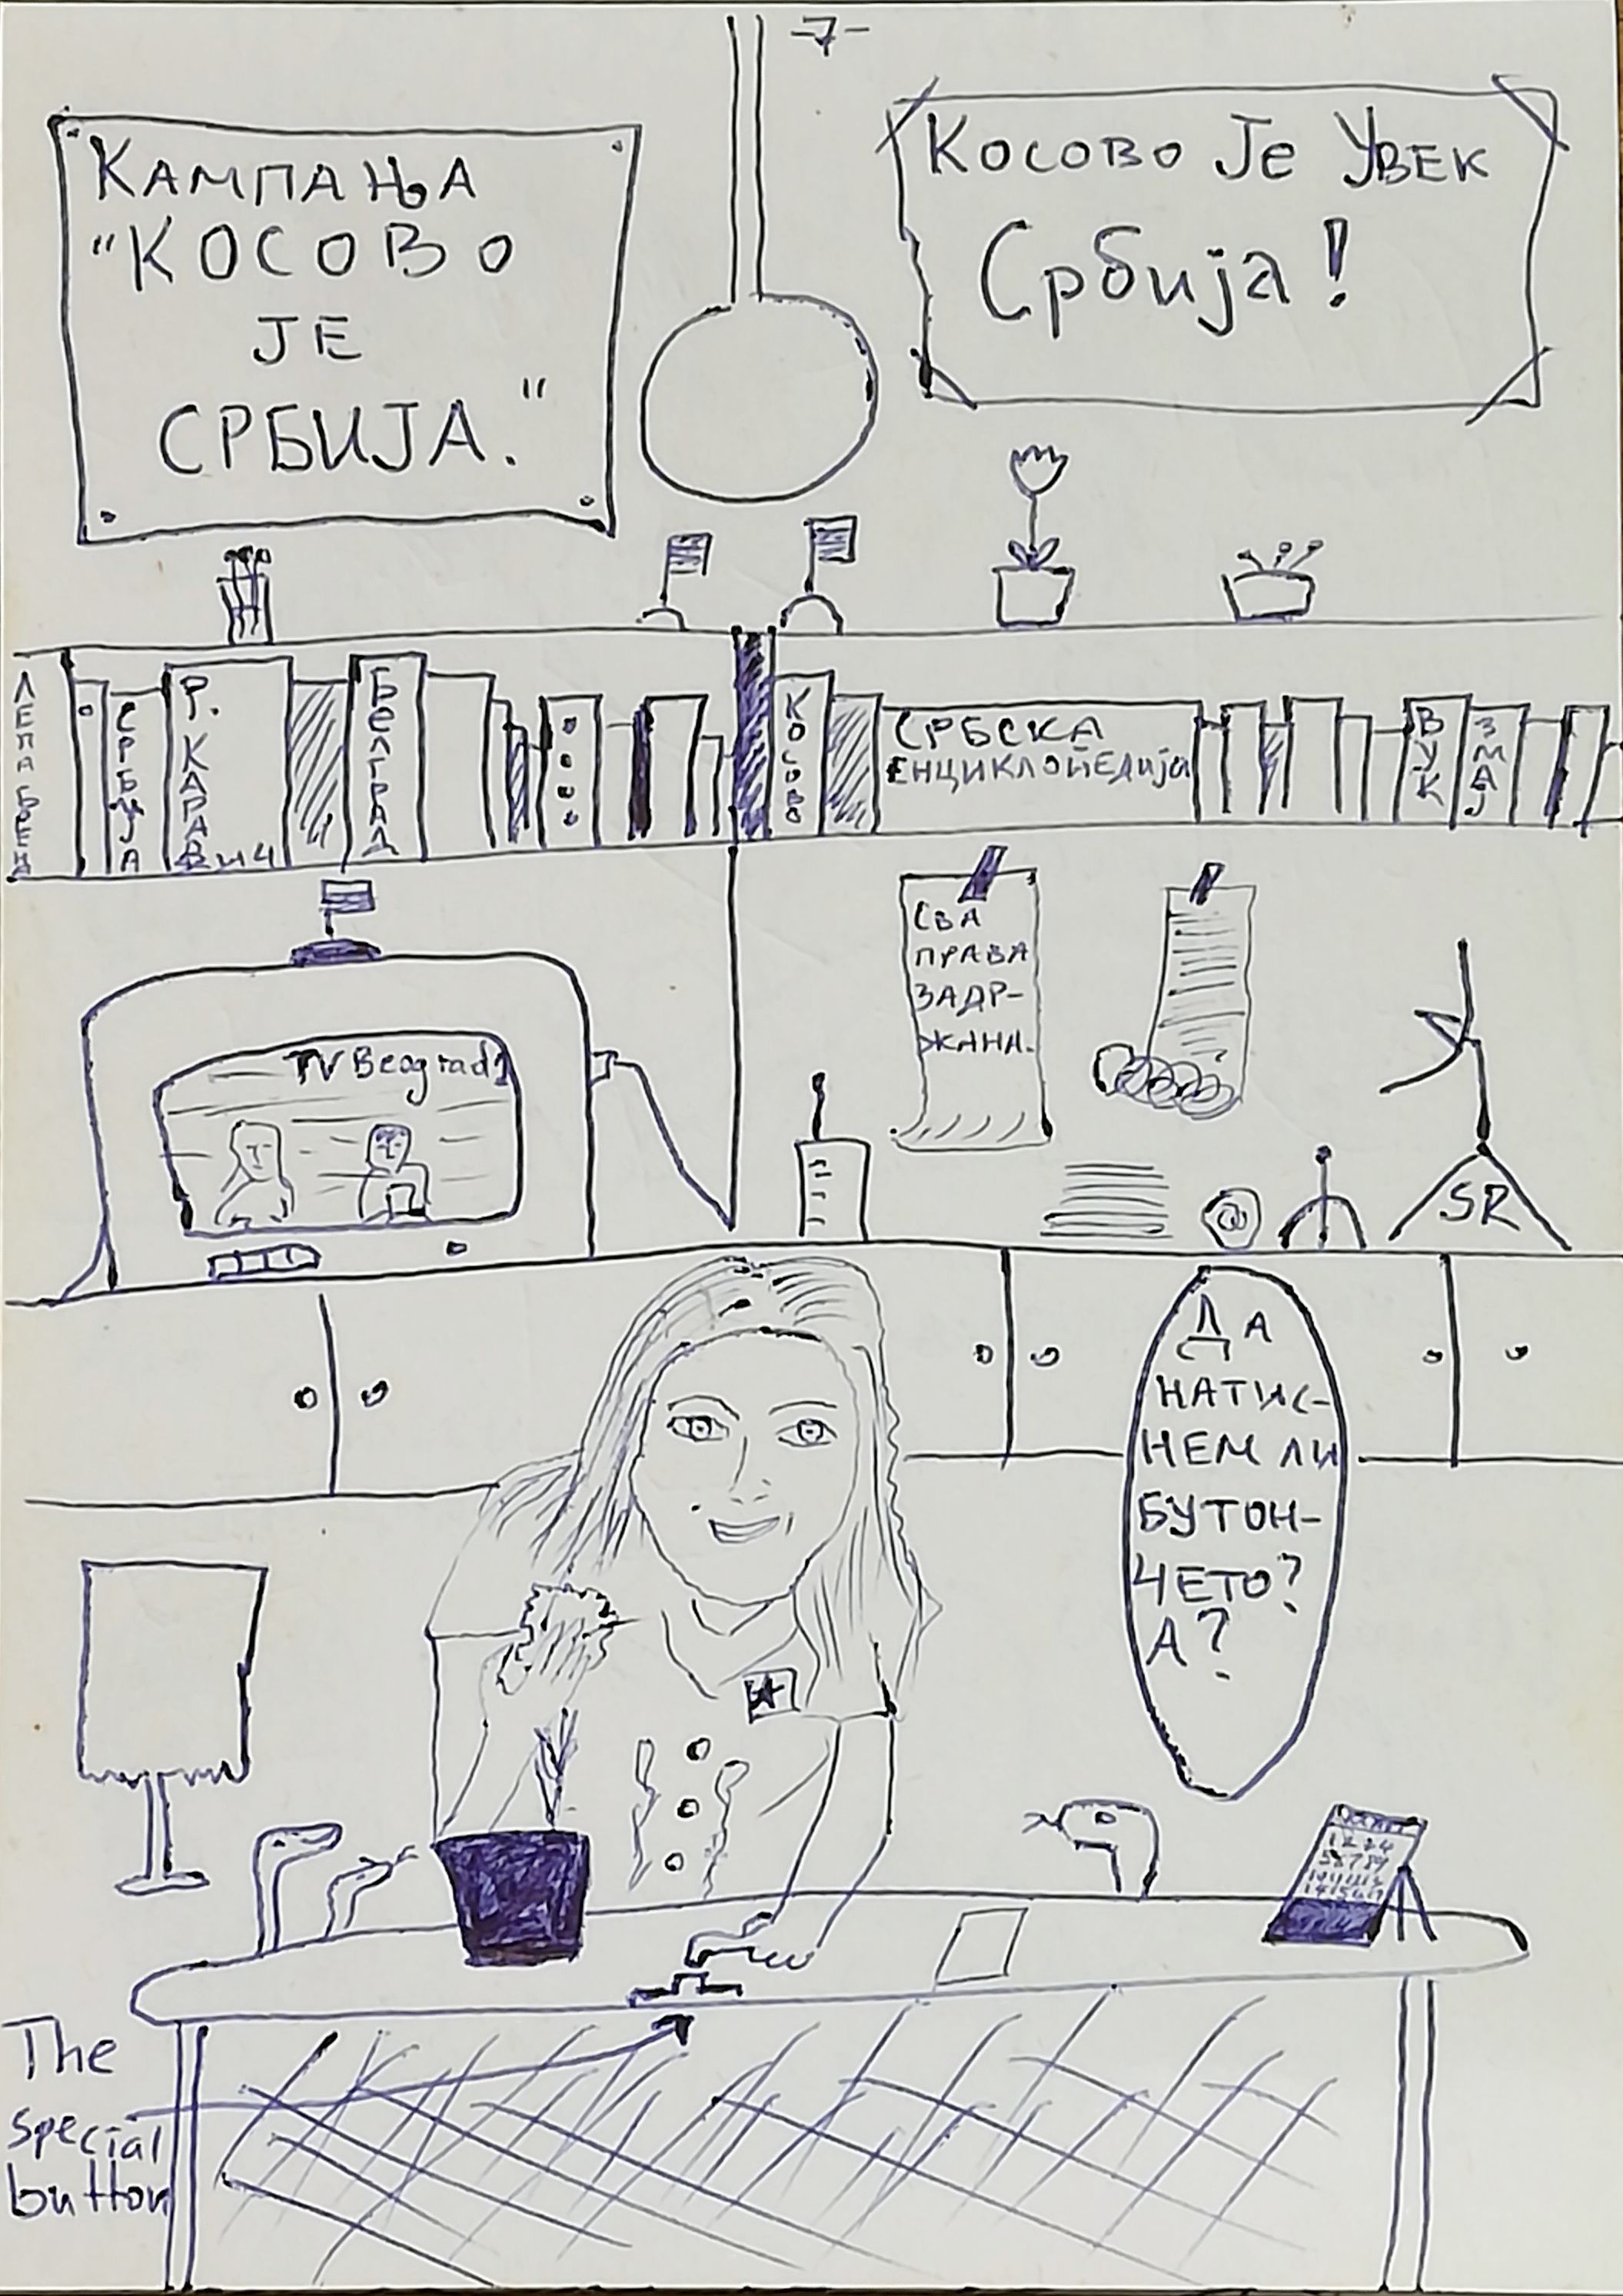 -7-
КАМПАЊА
"КОСОВО
ЈЕ
СРБИЈА."
Косово Је Увек
Србија!
ЛЕПА БРЕНА
СРБИЈА
Р. КАРАЏИЧ
БЕЛГРАД
КОСОВО
СРБСКА
ЕНЦИКЛОПЕДИЈА
ВУК
ЗМАЈ
TV Beograd1
СВА
ПРАВА
ЗАДР-
ЖАНА.
SR
ДА
НАТИС-
НЕМ ЛИ
БУТОН-
ЧЕТО?
А?
The
special
button